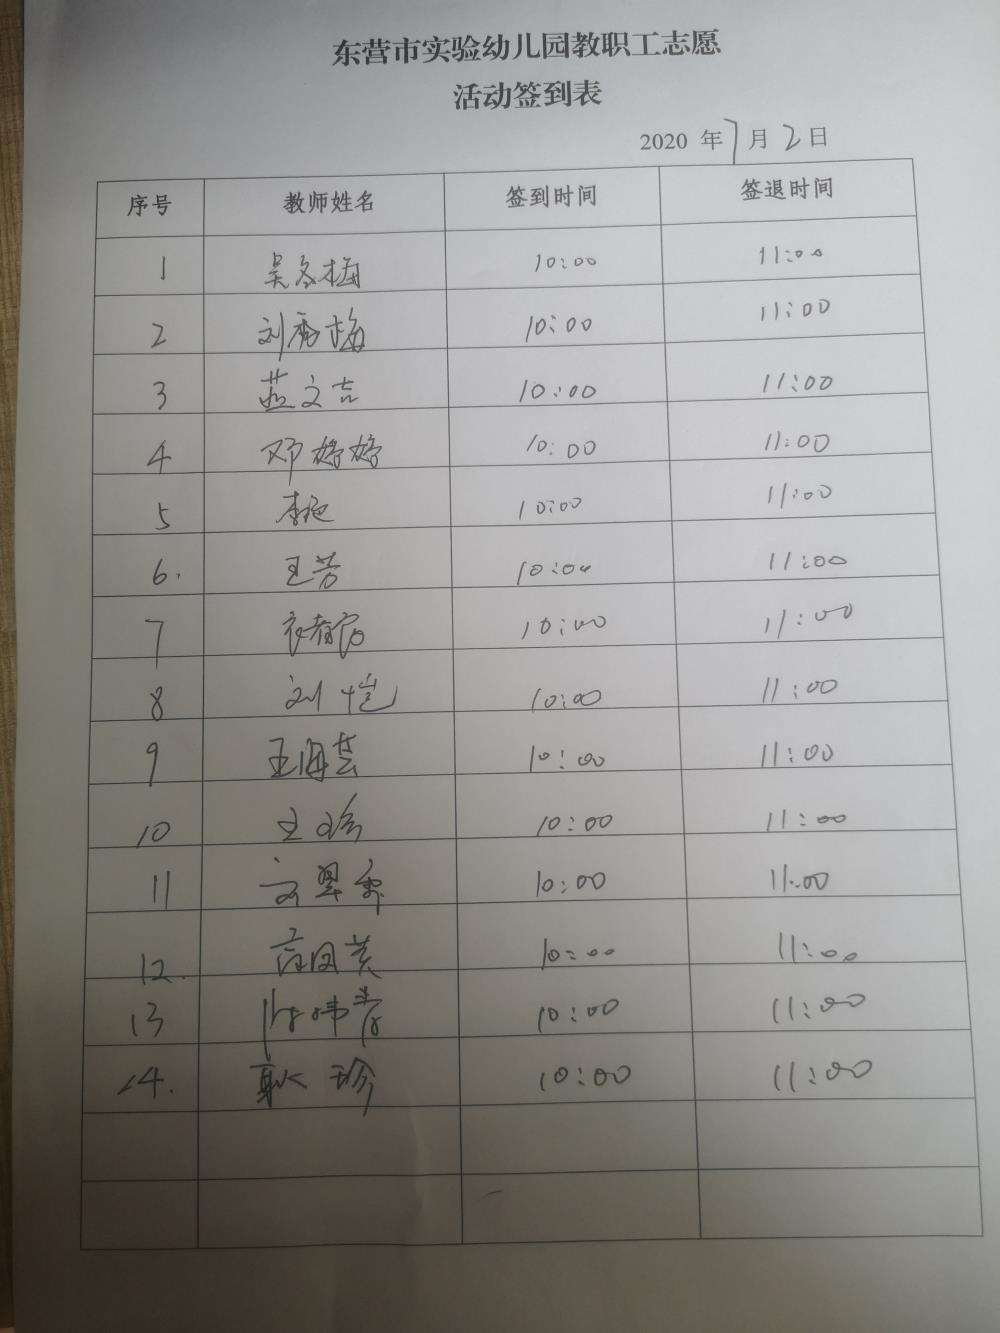 东营市实验幼儿园教职工志愿
活动签到表
2020 年 7 月 2 日
序号 教师姓名 签到时间 签退时间
1 吴冬梅 10:00 11:00
2 刘秀梅 10:00 11:00
3 燕文吉 10:00 11:00
4 邓婷婷 10:00 11:00
5 李艳 10:00 11:00
6. 王芳 10:00 11:00
7 10:00 11:00
8 刘恺 10:00 11:00
9 王海芸 10:00 11:00
10 王珍 10:00 11:00
11 10:00 11:00
12. 10:00 11:00
13 10:00 11:00
14. 耿珍 10:00 11:00